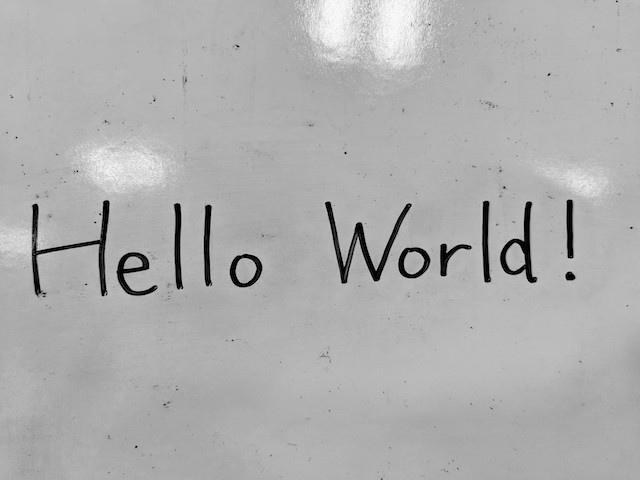 Hello World!